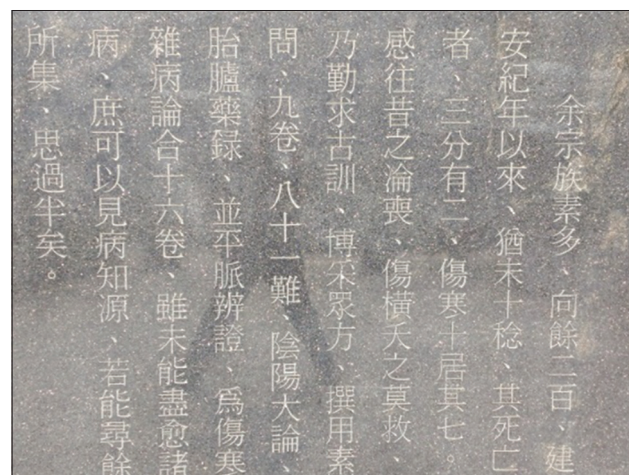 余宗族素多、向餘二百、建
安紀年以來、猶未十稔、其死亡
者、三分有二、傷寒十居其七。
感往昔之淪喪、傷橫夭之莫救、
乃勤求古訓、博采眾方、撰用素
問、九卷、八十一難、陰陽大論、
胎臚藥録、並平脈辨證、爲傷寒
雜病論合十六卷、雖未能盡愈諸
病、庶可以見病知源、若能尋餘
所集、思過半矣。